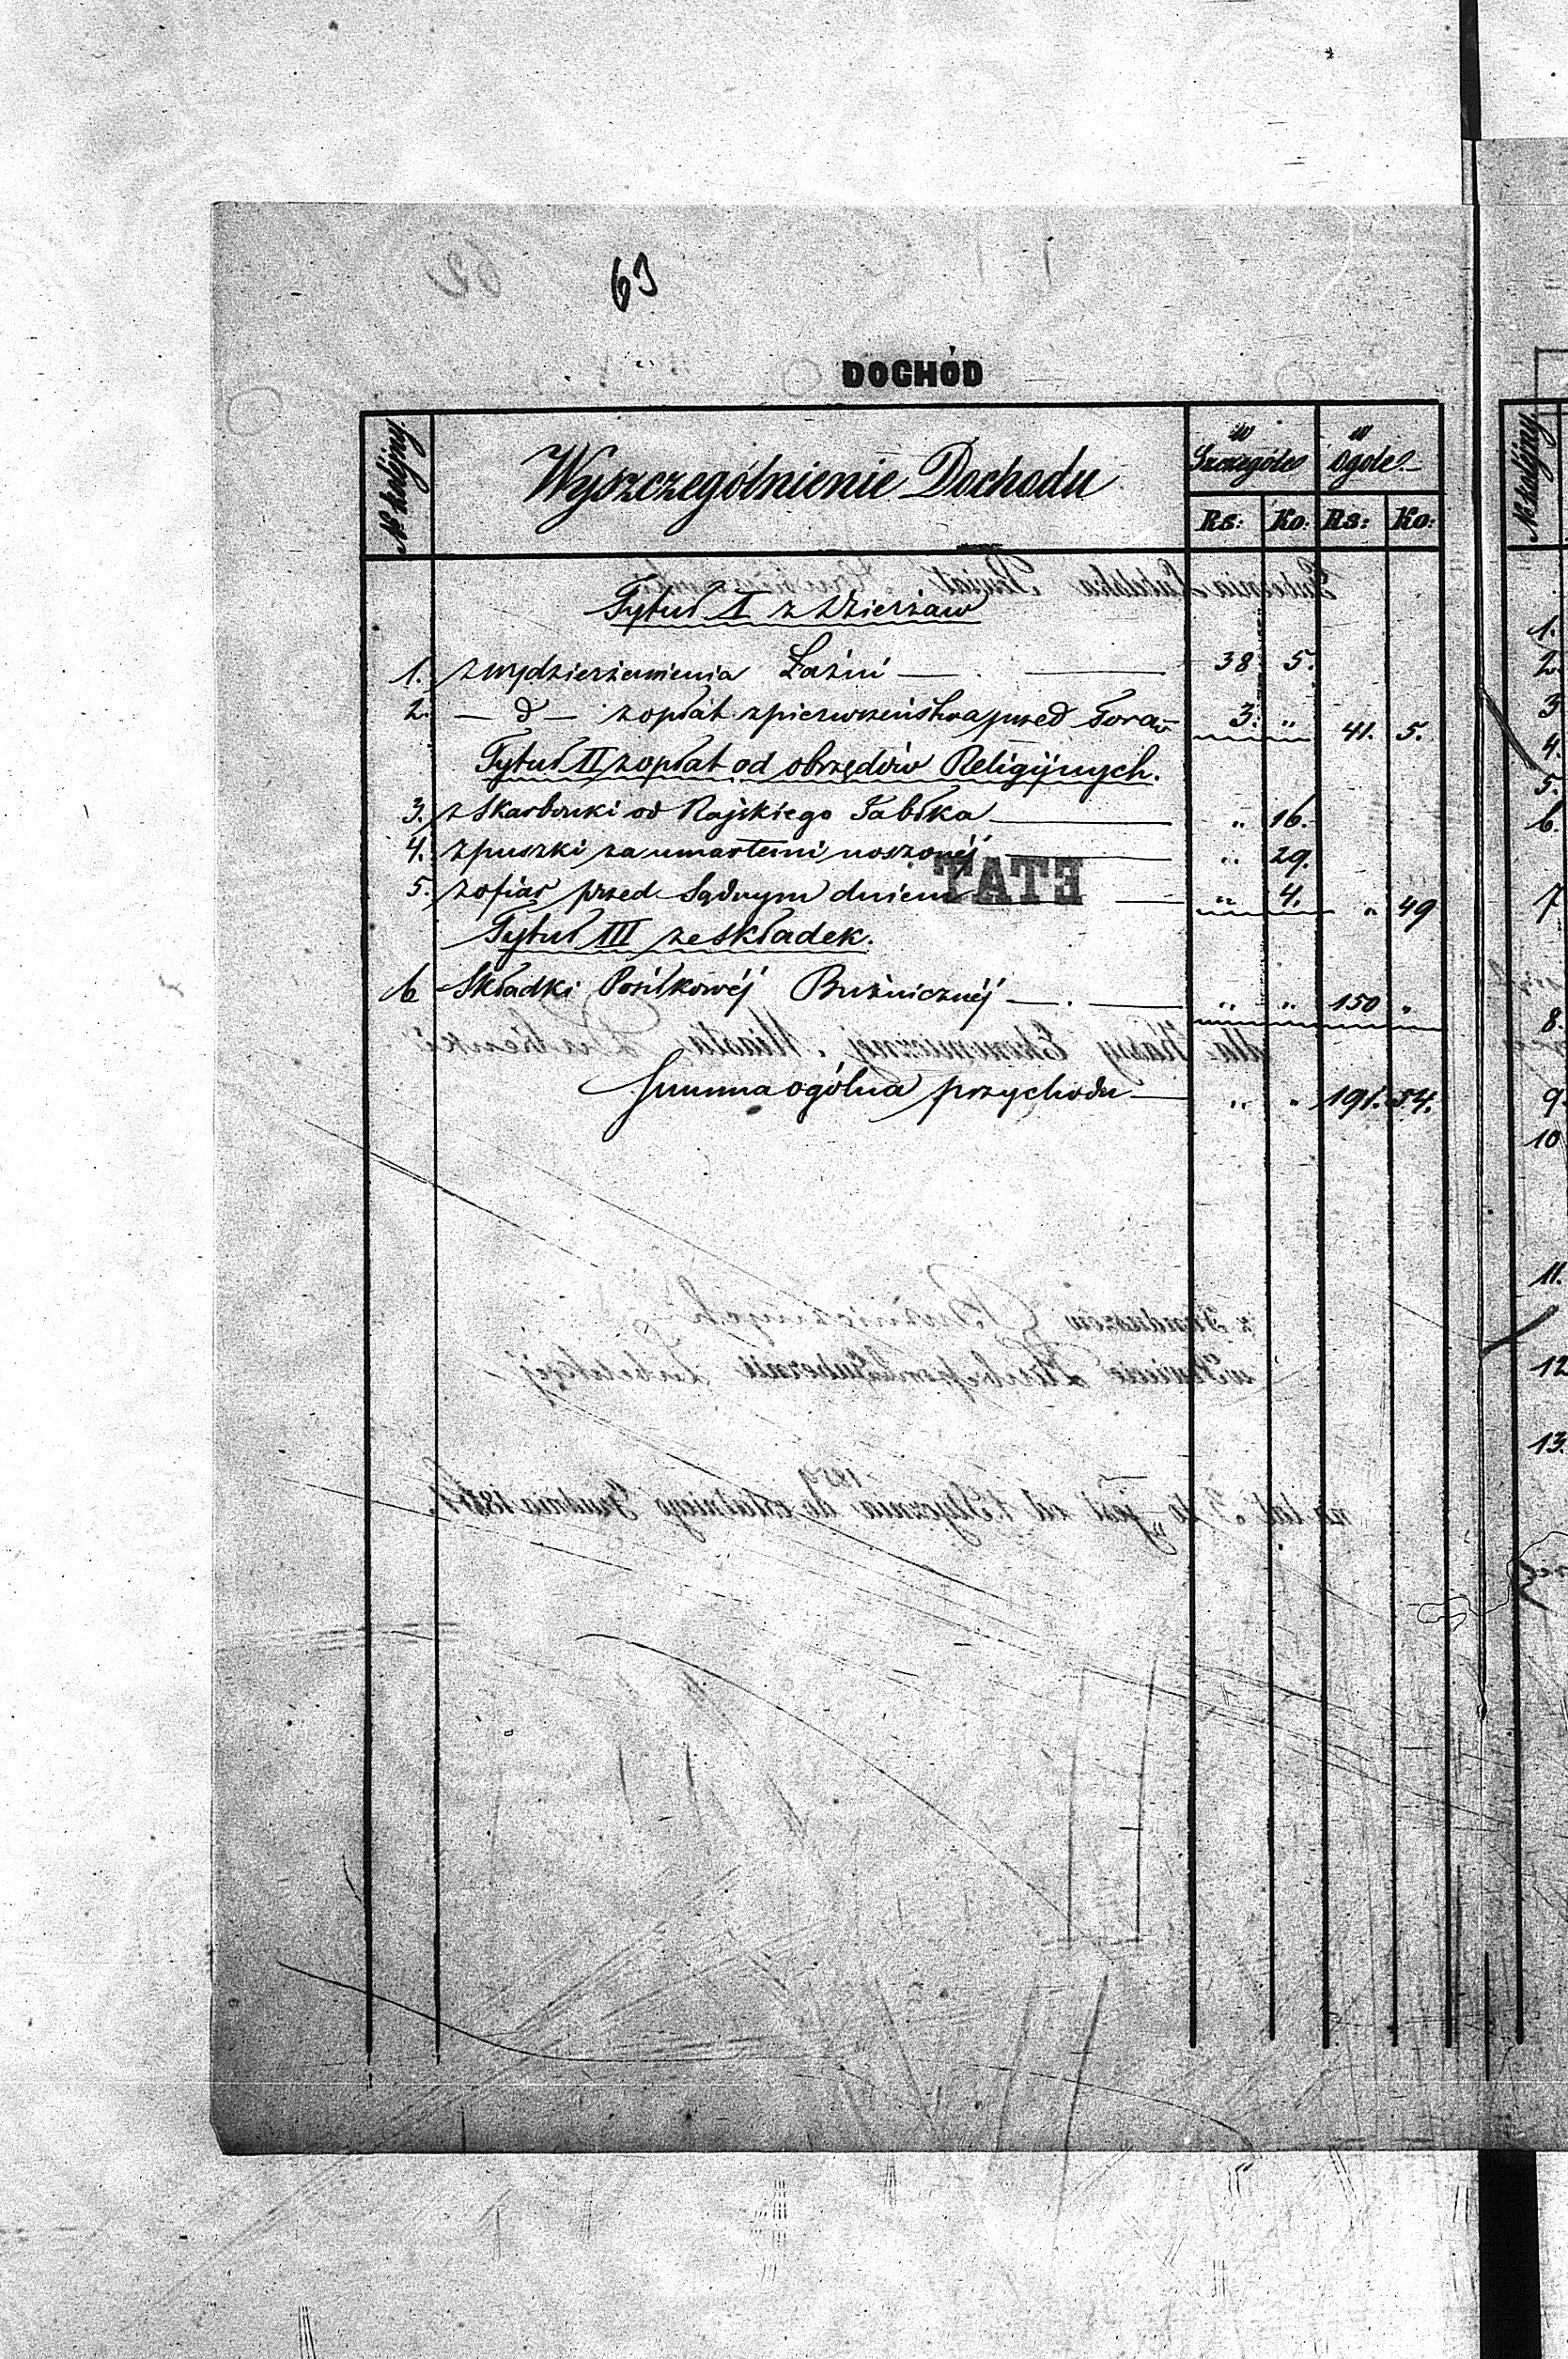 63
DOCHÓD
№ kolejny. Wyszczególnienie Dochodu w Szczególe w Ogóle
Rs: Ko: Rs: Ko:
Tytuł I z Dzierżaw
1. z wydzierżawienia Łaźni — 38 5.
2. — d — z opłat z pierwszeństwa przed Torą 3. " 41. 5.
Tytuł II z opłat od obrzędów Religijnych.
3. z Skarbonki od Rajskiego Jabłka " 16.
4. z puszki za umarłemi noszonéj " 29.
5. z ofiar przed Sądnym dniem " 4. " 49
Tytuł III ze składek.
6 Składki Posiłkowéj Buźnicznéj — " " 150 "
Summa ogólna przychodu — " " 191. 54.
ETAT
№ kolejny
1.
2.
3
4.
5.
6.
7
8
9.
10
11.
12
13.